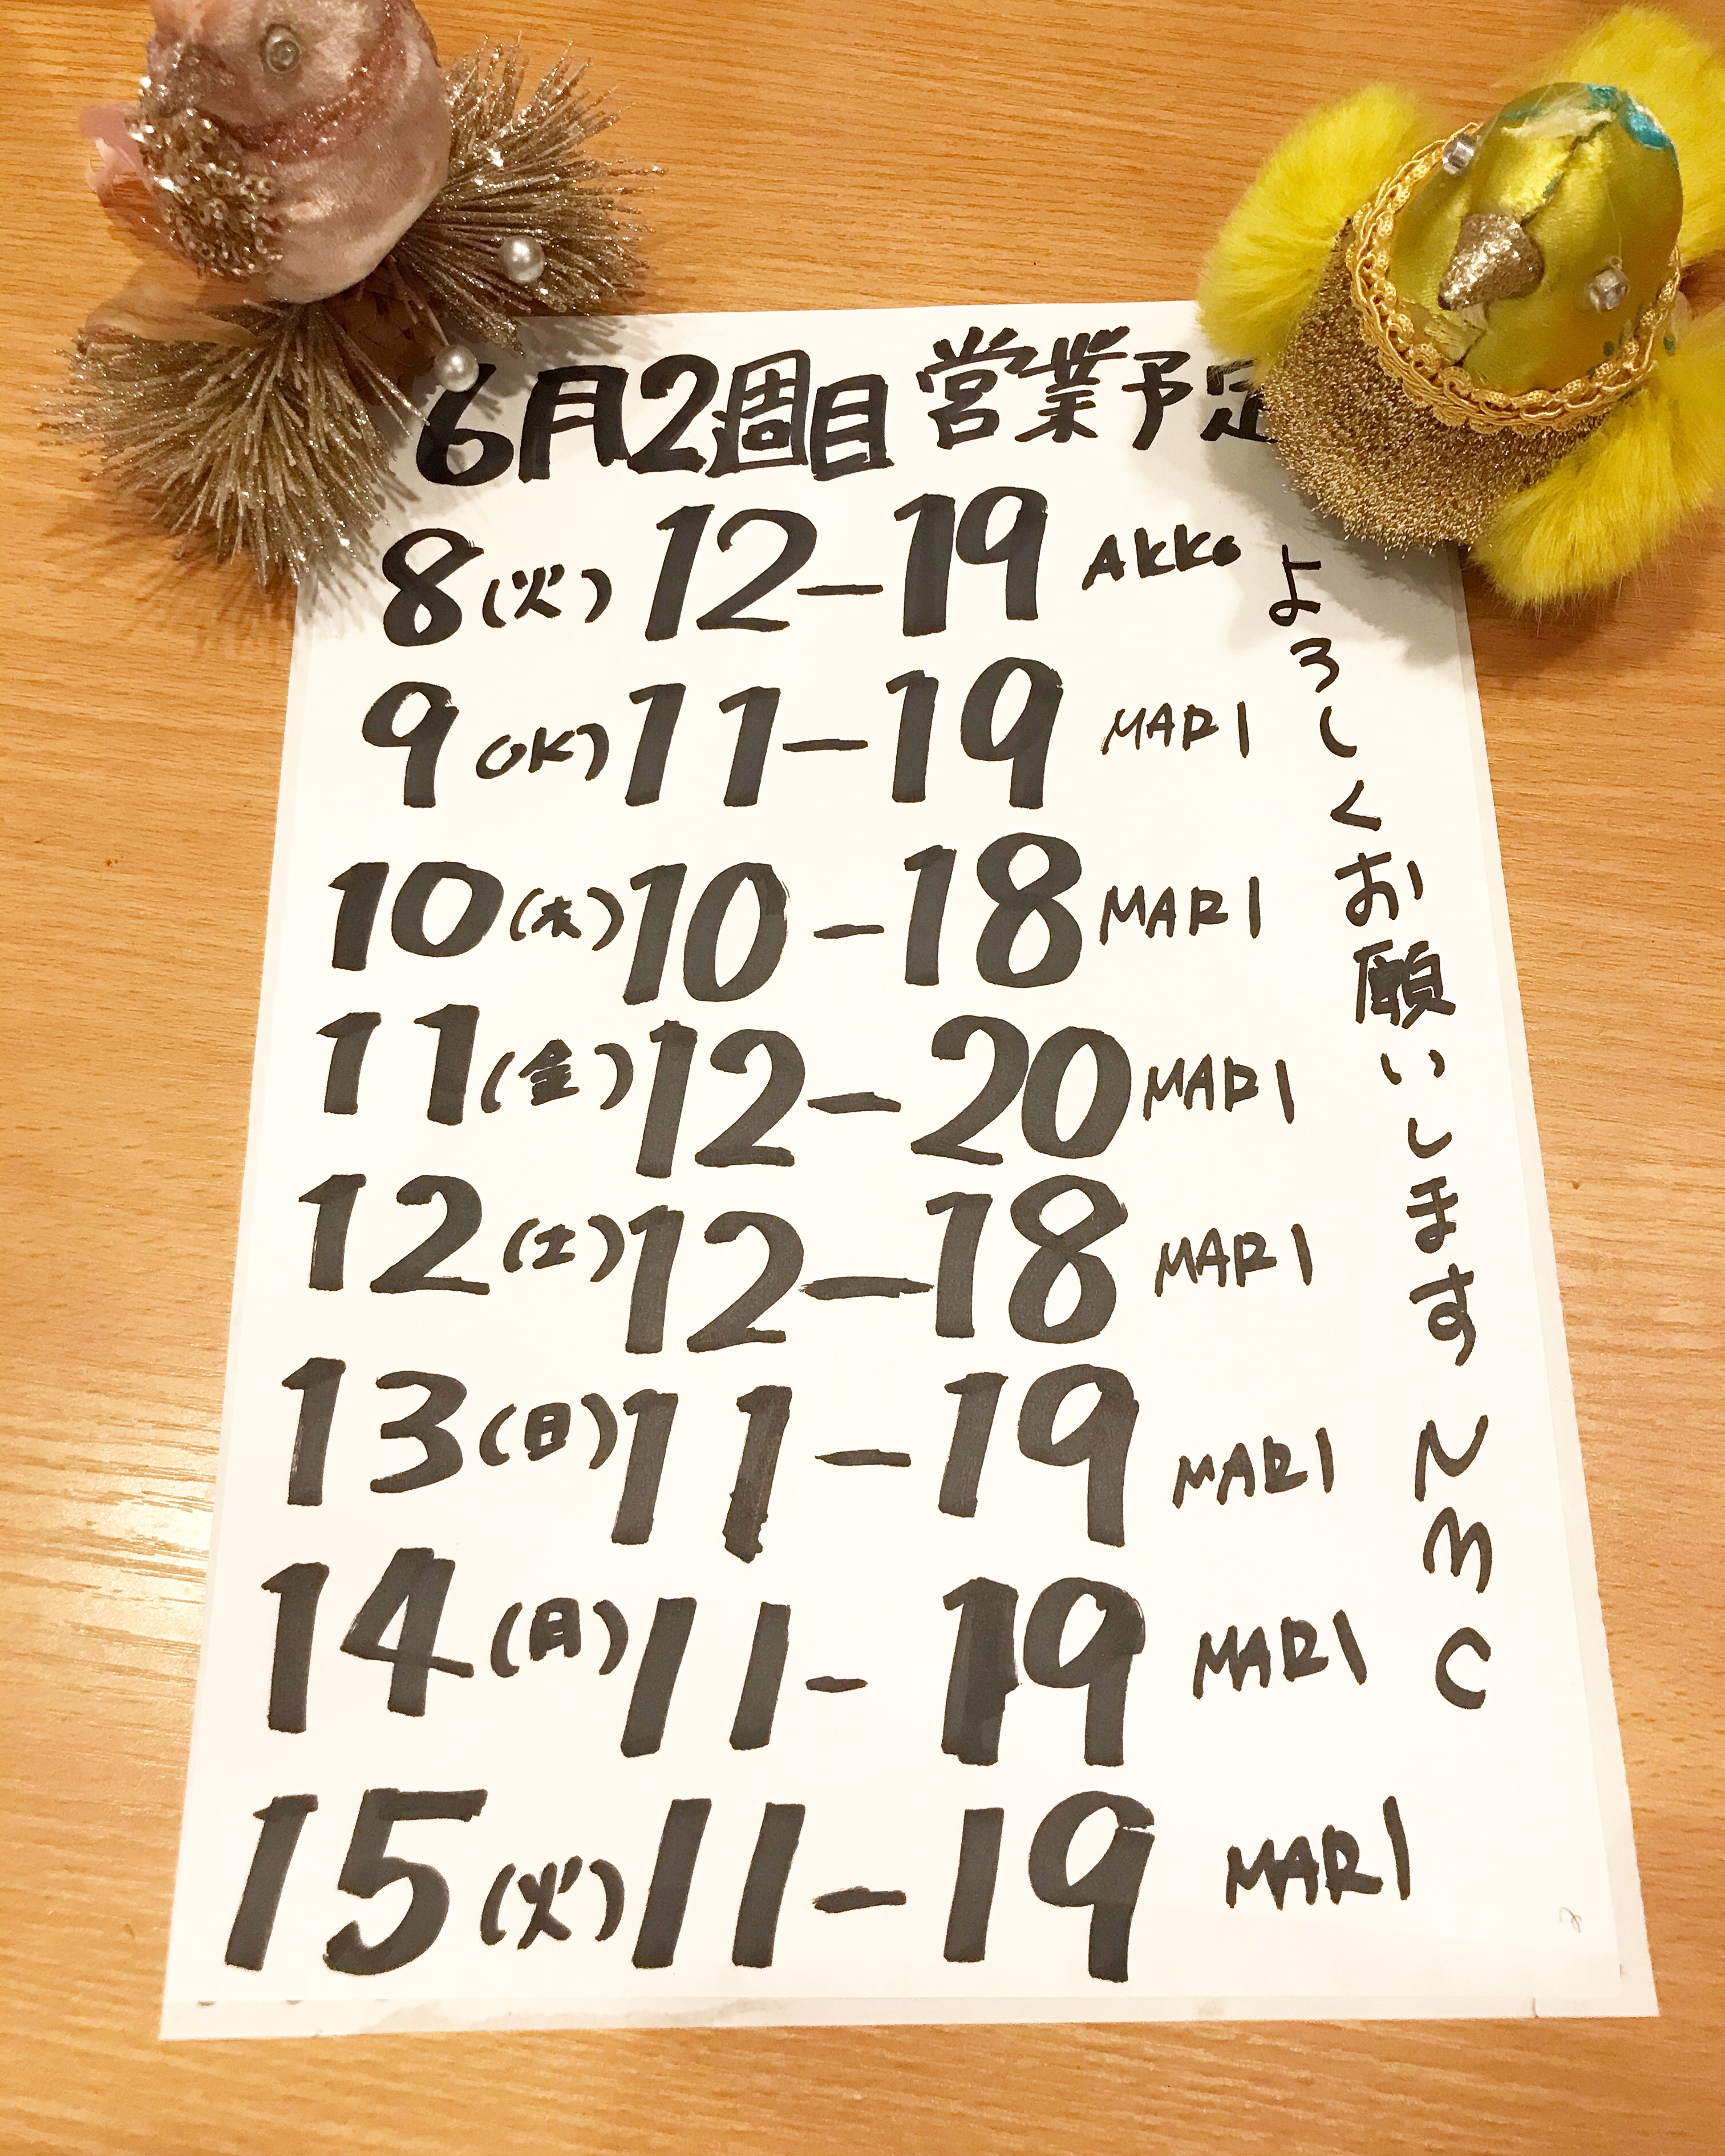 6月2週目 営業予定
8(火) 12-19 AKKo
9(水) 11-19 MARI
10(木) 10-18 MARI
11(金) 12-20 MARI
12(土) 12-18 MARI
13(日) 11-19 MARI
14(月) 11-19 MARI
15(火) 11-19 MARI
よろしくお願いします NMC